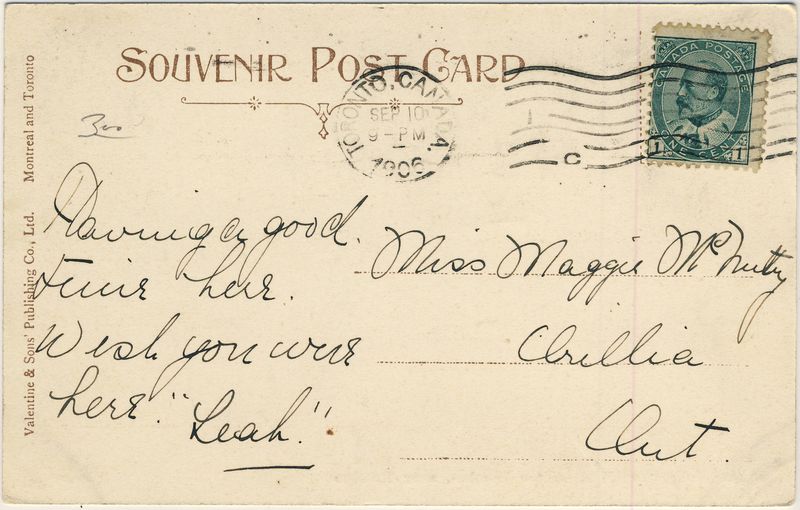 SOUVENIR POST CARD
TORONTO, CANADA.
SEP 10
9-PM
1906
C
CANADA POSTAGE
1 ONE CENT 1
300
Valentine & Sons' Publishing Co., Ltd. Montreal and Toronto
Having a good
time here.
Wish you were
here. "Leah."
Miss Maggie McNulty
Orillia
Ont.